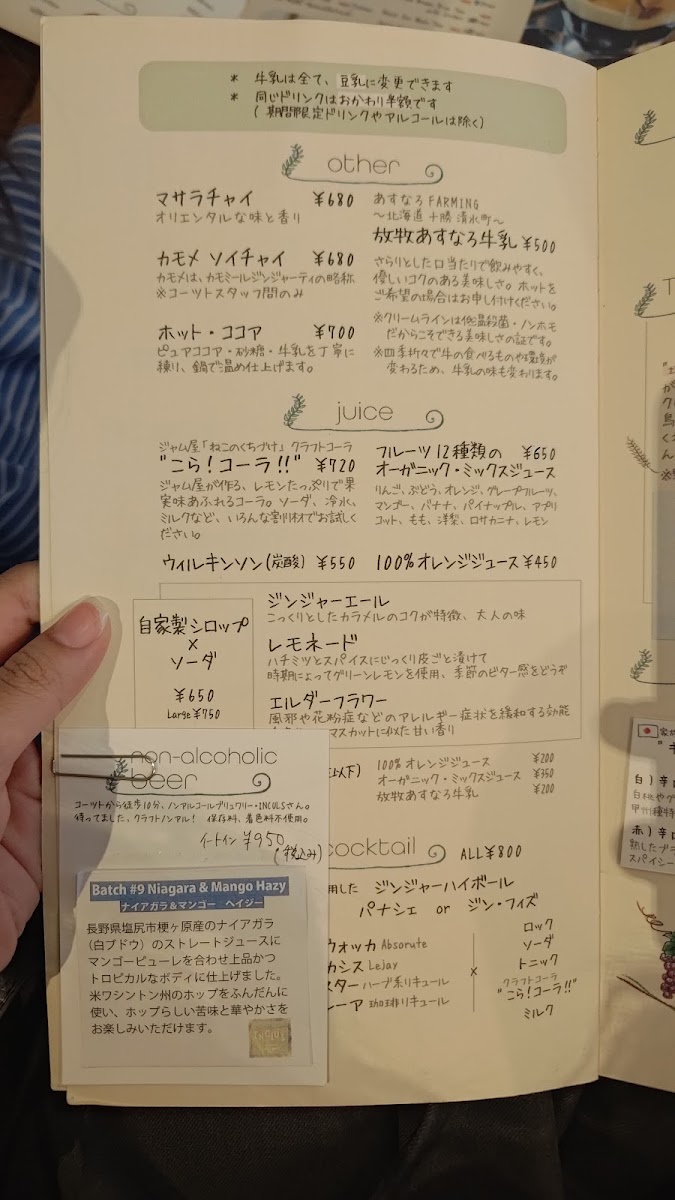 * 牛乳は全て、豆乳に変更できます
* 同じドリンクはおかわり半額です
( 期間限定ドリンクやアルコールは除く)
other
マサラチャイ ¥680
オリエンタルな味と香り
カモメ ソイチャイ ¥680
カモメは、カモミールジンジャーティの略称
※コーツトスタッフ間のみ
ホット・ココア ¥700
ピュアココア・砂糖・牛乳を丁寧に
練り、鍋で温め仕上げます。
あすなろ FARMING
〜北海道 十勝 清水町〜
放牧あすなろ牛乳 ¥500
さらりとした口当たりで飲みやすく、
優しいコクのある美味しさ。ホットを
ご希望の場合はお申し付けください。
※クリームラインは低温殺菌・ノンホモ
だからこそできる美味しさの証です。
※四季折々で牛の食べるものや環境が
変わるため、牛乳の味も変わります。
juice
ジャム屋「ねこのくちづけ」クラフトコーラ
"こら!コーラ!!" ¥720
ジャム屋が作る、レモンたっぷりで果
実味あふれるコーラ。ソーダ、冷水、
ミルクなど、いろんな割り材でお試しく
ださい。
フルーツ12種類の ¥650
オーガニック・ミックスジュース
りんご、ぶどう、オレンジ、グレープフルーツ、
マンゴー、バナナ、パイナップル、アプリ
コット、もも、洋梨、ロサカニナ、レモン
ウィルキンソン(炭酸) ¥550
100%オレンジジュース ¥450
自家製シロップ
×
ソーダ
¥650
Large ¥750
ジンジャーエール
こっくりとしたカラメルのコクが特徴、大人の味
レモネード
ハチミツとスパイスにじっくり皮ごと漬けて
時期によってグリーンレモンを使用、季節のビター感をどうぞ
エルダーフラワー
風邪や花粉症などのアレルギー症状を緩和する効能
マスカットに似た甘い香り
以下)
100%オレンジジュース ¥200
オーガニック・ミックスジュース ¥350
放牧あすなろ牛乳 ¥200
non-alcoholic
beer
コーツトから徒歩10分、ノンアルコールブリュワリー・INCULSさん。
待ってました、クラフトノンアル! 保存料、着色料不使用。
イートイン ¥950
(税込み)
Batch #9 Niagara & Mango Hazy
ナイアガラ&マンゴー ヘイジー
長野県塩尻市桔ヶ原産のナイアガラ
(白ブドウ)のストレートジュースに
マンゴーピューレを合わせ上品かつ
トロピカルなボディに仕上げました。
米ワシントン州のホップをふんだんに
使い、ホップらしい苦味と華やかさを
お楽しみいただけます。
cocktail ALL¥800
用した ジンジャーハイボール
パナシェ or ジン・フィズ
ウォッカ Absorute
カシス Lejay
スター ハーブ系リキュール
ーア 珈琲リキュール
×
ロック
ソーダ
トニック
クラフトコーラ
"こら!コーラ!!"
ミルク
白)辛口
赤)辛口